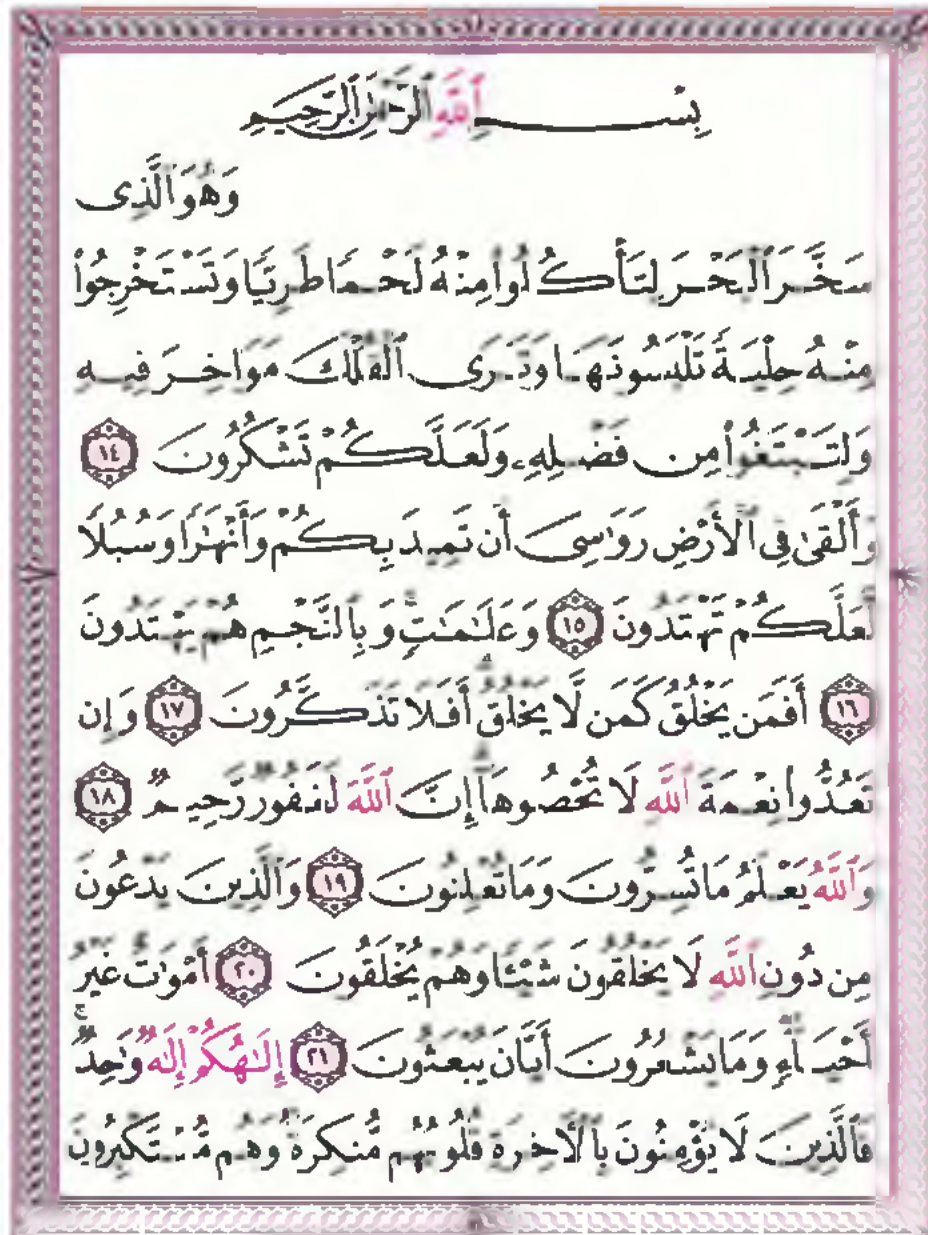 بِسْــــمِ ٱللَّهِ ٱلرَّحْمَٰنِ ٱلرَّحِيمِ
وَهُوَ ٱلَّذِى
سَخَّرَ ٱلْبَحْرَ لِتَأْكُلُوا۟ مِنْهُ لَحْمًا طَرِيًّا وَتَسْتَخْرِجُوا۟
مِنْهُ حِلْيَةً تَلْبَسُونَهَا وَتَرَى ٱلْفُلْكَ مَوَاخِرَ فِيهِ
وَلِتَبْتَغُوا۟ مِن فَضْلِهِۦ وَلَعَلَّكُمْ تَشْكُرُونَ ١٤
وَأَلْقَىٰ فِى ٱلْأَرْضِ رَوَٰسِىَ أَن تَمِيدَ بِكُمْ وَأَنْهَٰرًا وَسُبُلًا
لَّعَلَّكُمْ تَهْتَدُونَ ١٥ وَعَلَٰمَٰتٍ ۚ وَبِٱلنَّجْمِ هُمْ يَهْتَدُونَ
١٦ أَفَمَن يَخْلُقُ كَمَن لَّا يَخْلُقُ ۗ أَفَلَا تَذَكَّرُونَ ١٧ وَإِن
تَعُدُّوا۟ نِعْمَةَ ٱللَّهِ لَا تُحْصُوهَآ ۗ إِنَّ ٱللَّهَ لَغَفُورٌ رَّحِيمٌ ١٨
وَٱللَّهُ يَعْلَمُ مَا تُسِرُّونَ وَمَا تُعْلِنُونَ ١٩ وَٱلَّذِينَ يَدْعُونَ
مِن دُونِ ٱللَّهِ لَا يَخْلُقُونَ شَيْـًٔا وَهُمْ يُخْلَقُونَ ٢٠ أَمْوَٰتٌ غَيْرُ
أَحْيَآءٍ وَمَا يَشْعُرُونَ أَيَّانَ يُبْعَثُونَ ٢١ إِلَٰهُكُمْ إِلَٰهٌ وَٰحِدٌ ۚ
فَٱلَّذِينَ لَا يُؤْمِنُونَ بِٱلْـَٔاخِرَةِ قُلُوبُهُم مُّنكِرَةٌ وَهُم مُّسْتَكْبِرُونَ